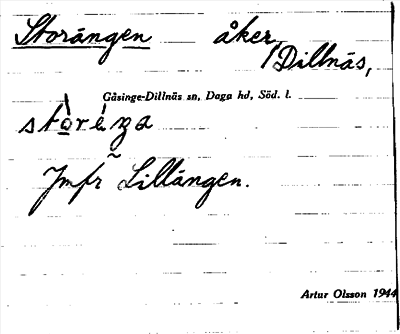 Storängen åker
/Dillnäs,
Gåsinge-Dillnäs sn, Daga hd, Söd. l.
Jmfr Lillängen.
Artur Olsson 1944